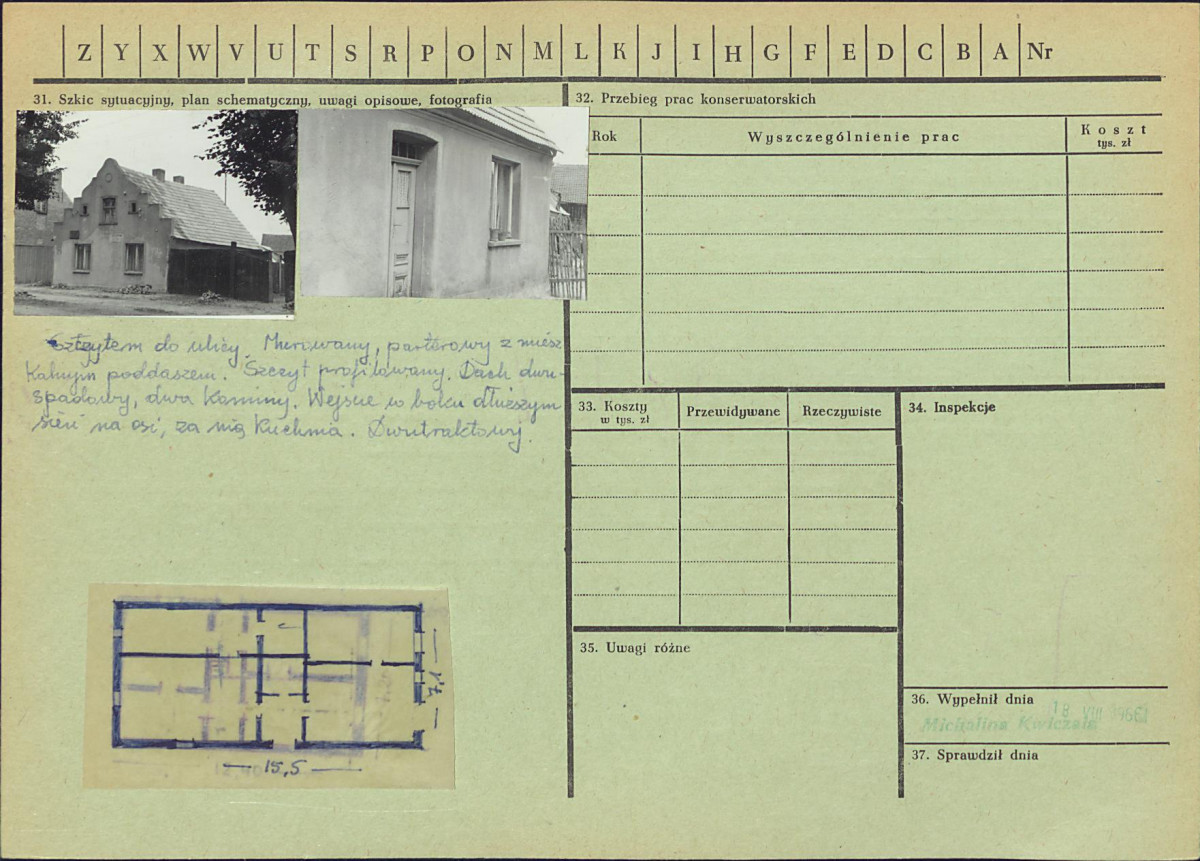 Z Y X W V U T S R P O N M L K J I H G F E D C B A Nr
31. Szkic sytuacyjny, plan schematyczny, uwagi opisowe, fotografia
Szczytem do ulicy. Murowany, parterowy z miesz
kalnym poddaszem. Szczyt profilowany. Dach dwu-
spadowy, dwa kominy. Wejście w boku dłuższym
sień na osi, za nią kuchnia. Dwutraktowy.
15,5
32. Przebieg prac konserwatorskich
Rok
Wyszczególnienie prac
Koszt
tys. zł
33. Koszty
w tys. zł
Przewidywane
Rzeczywiste
34. Inspekcje
35. Uwagi różne
36. Wypełnił dnia
18 VIII
Michalina Kwiczala
37. Sprawdził dnia